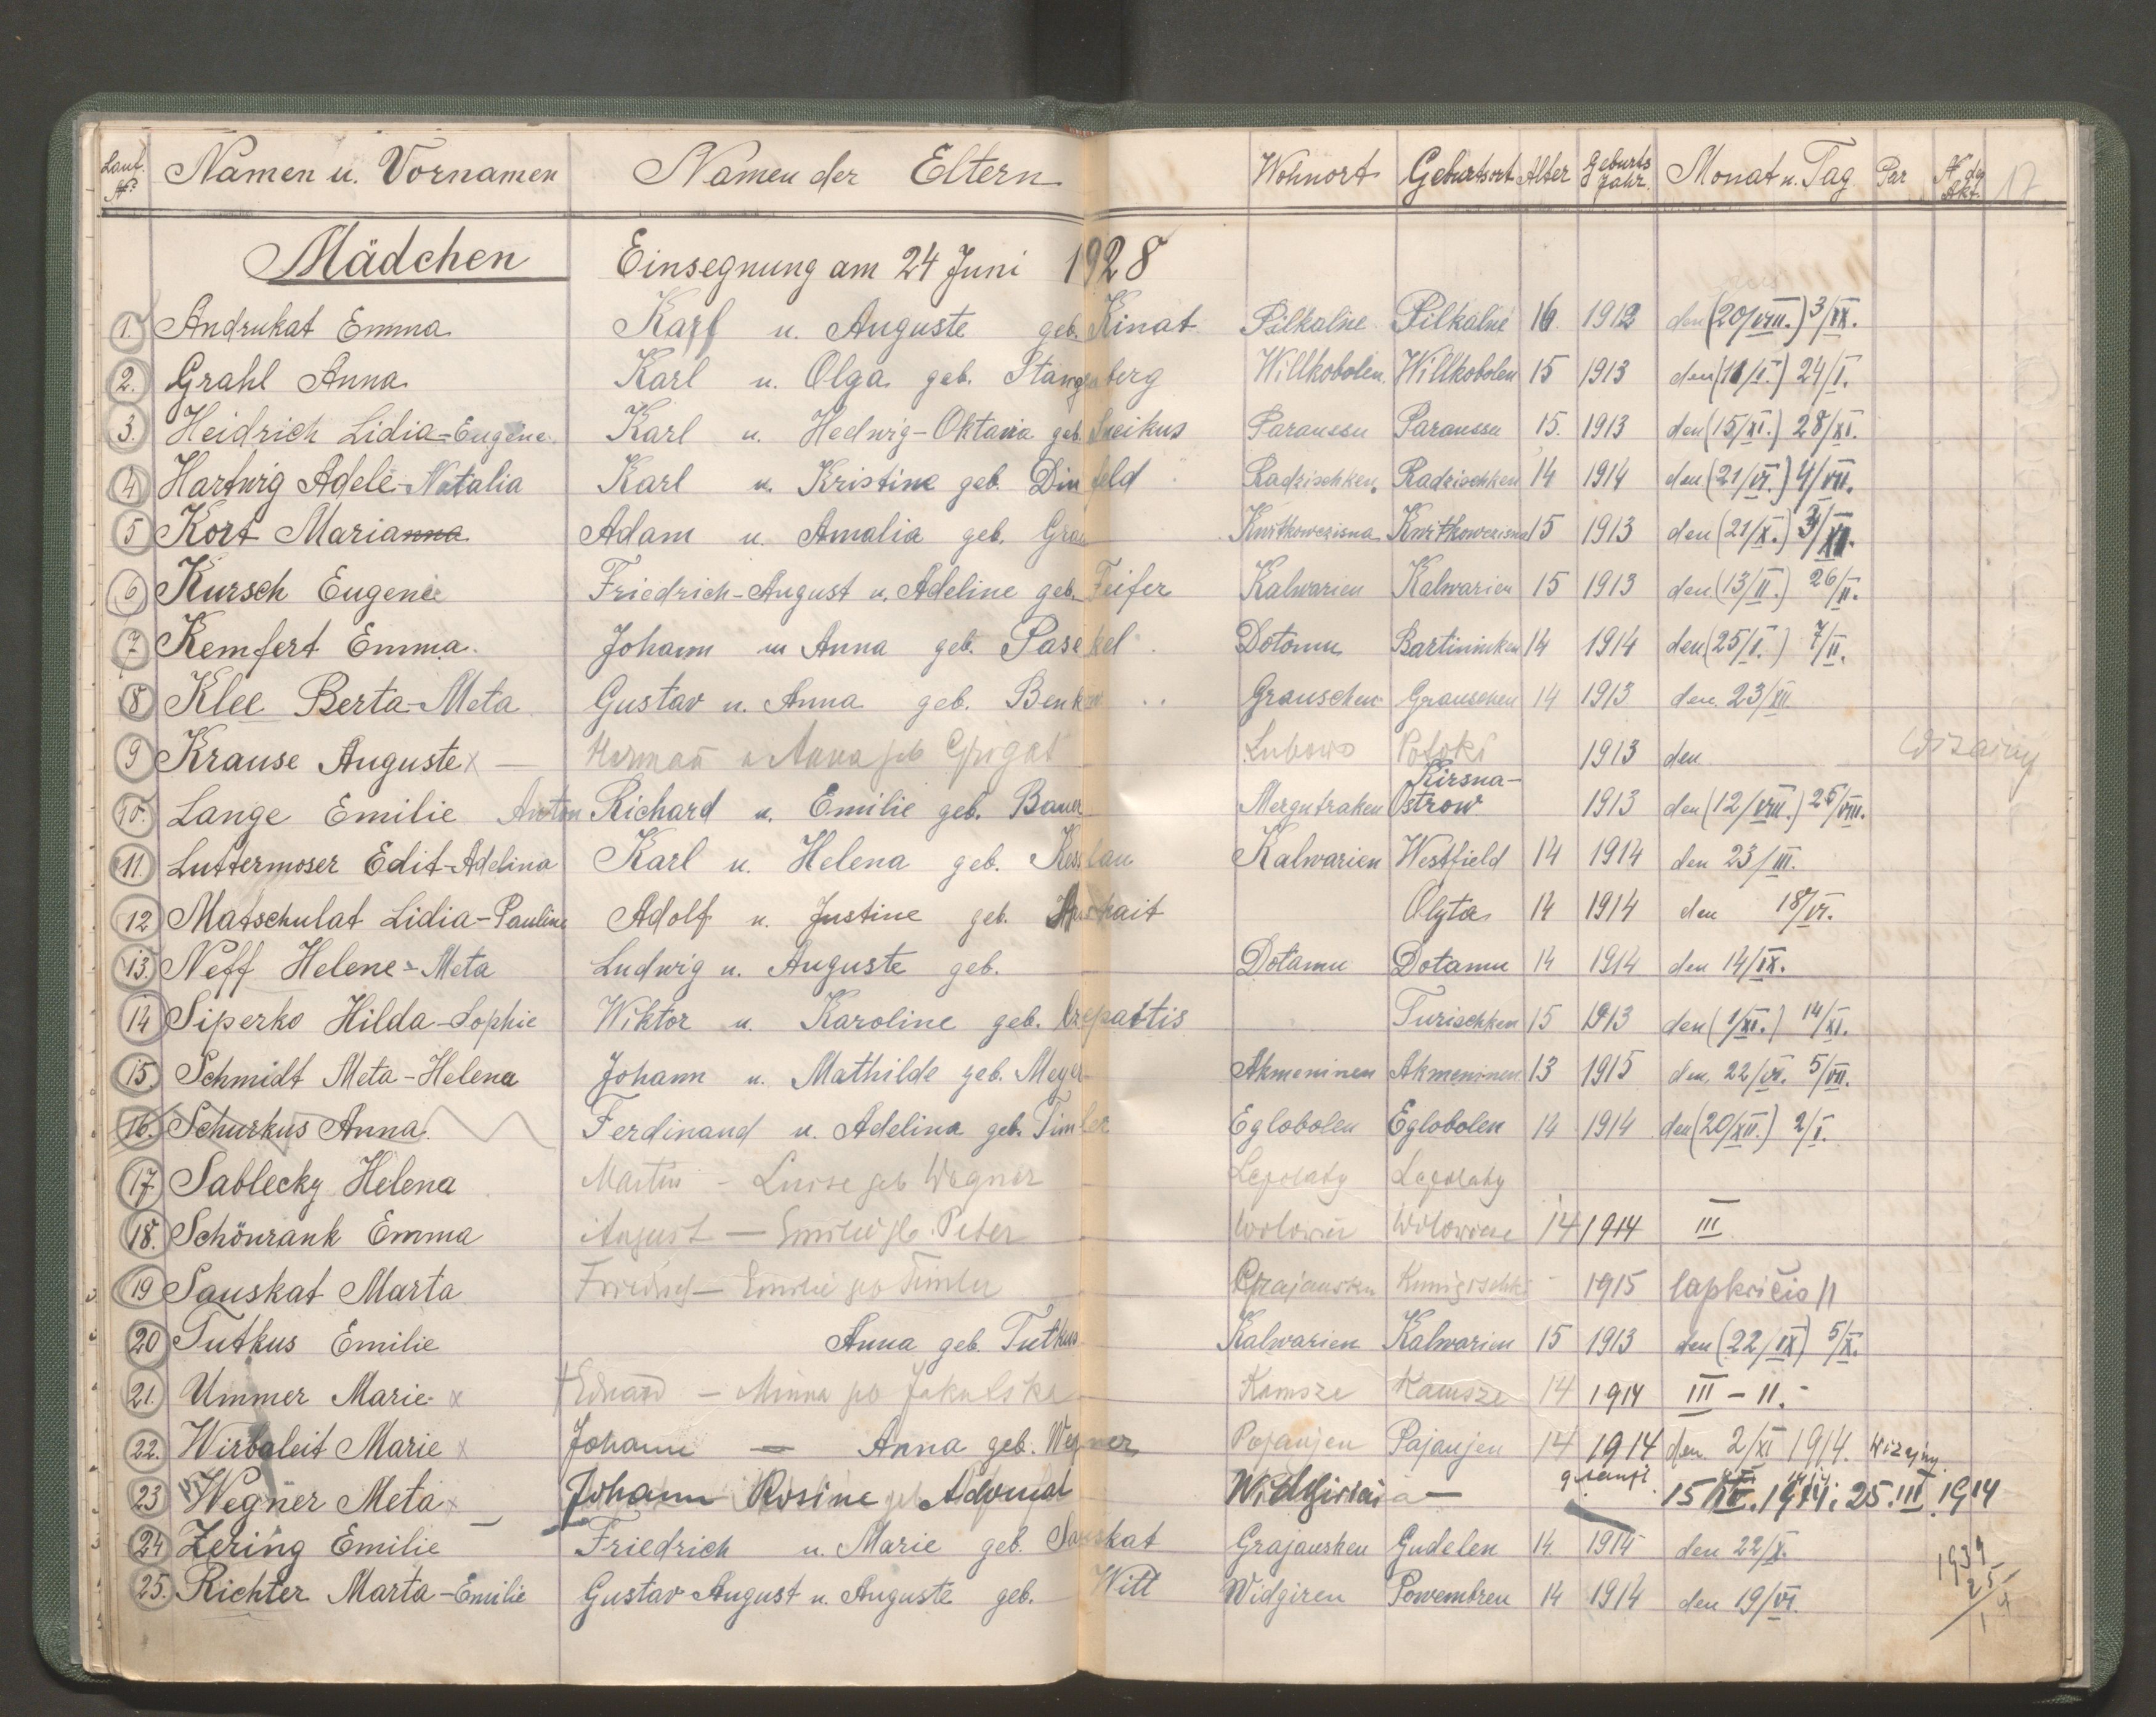 Lauf. № Namen u. Vornamen Namen der Eltern Wohnort Geburtsort Alter Geburts Jahr. Monat u. Tag Par № de Akt. 17
Mädchen Einsegnung am 24 Juni 1928
1. Andrukat Emma Karl u. Auguste geb. Kinat Pilkalne Pilkalne 16 1912 den (20/VIII.) 3/IX.
2. Grahl Anna Karl u. Olga geb. Stangenberg Willkobolen Willkobolen 15 1913 den (11/I.) 24/I.
3. Heidrich Lidia-Eugenie Karl u. Hedwig-Oktawia geb. Paraussu Paraussu 15. 1913 den (15/XI.) 28/XI.
4 Hartwig Adele-Natalia Karl u. Kristine geb. Dinfeld Radzischken. Radzischken 14 1914 den (21/VI.) 4/VII.
5 Kort Marianna Adam u. Amalia geb. Kwitkowczisna Kwitkowczisna 15 1913 den (21/X.) 3/XI.
6 Kursch Eugenie Friedrich-August u. Adeline geb. Feifer Kalwarien Kalwarien 15 1913 den (13/II.) 26/II.
7 Kemfert Emma. Johann u Anna geb. Pasekel Dotamu Bartininken 14 1914 den (25/I.) 7/II.
8 Klee Berta-Meta Gustav u. Anna geb. Grauschen Grauschen 14 1913 den 23/XII
9 Krause Auguste x — Herman u Anna geb Lubowo Potoki 1913 den Wizainy
10. Lange Emilie Anton Richard u. Emilie geb. Bauer Mergutraken Kirsna-Ostrow 1913 den (12/VIII.) 25/VIII.
11. Luttermoser Edit-Adelina Karl u. Helena geb. Kesslau Kalwarien Westfield 14 1914 den 23/III.
12 Matschulat Lidia-Pauline Adolf u. Justine geb. Olyta 14 1914 den 18/VI.
13. Neff Helene-Meta Ludwig u. Auguste geb. Dotamu Dotamu 14 1914 den 14/IX.
14 Siperko Hilda-Sophie Wiktor u. Karoline geb. Czepaitis Turischken 15 1913 den (1/XI.) 14/XI.
15. Schmidt Meta-Helena Johann u. Mathilde geb. Meyer Akmeninen Akmeninen 13 1915 den 22/VI. 5/VII.
16. Schurkus Anna. Ferdinand u. Adelina geb. Timler Eglobolen Eglobolen 14 1914 den (20/XII.) 2/I.
17 Sablecky Helena Martin - Luise geb Wegner
18. Schönrank Emma August — Emilie geb. Peter 14 1914 III
19 Sauskat Marta Friedrich — Emilie geb Timler Grajausken 1915 lapkričio 11
20 Tutkus Emilie Anna geb. Tutkus Kalwarien Kalwarien 15 1913 den (22/IX) 5/X.
21. Ummer Marie x Eduard — Minna geb Jakulski Kamsze Kamsze 14 1914 III - 11.-
22. Wirbaleit Marie x Johann — Anna geb. Wegner Pajaujen Pajaujen 14 1914 den 2/XI 1914. Wizajny
23 Wegner Meta x Johann Rosine geb Adomat Widgiriai — 15 1914. 25.III.1914
24 Zering Emilie Friedrich u. Marie geb. Sauskat Grajausken Gudelen 14. 1914 den 22/X.
25. Richter Marta-Emilie Gustav August u. Auguste geb. Witt Widgiren Powembren 14 1914 den 19/VI.
1939
25
14